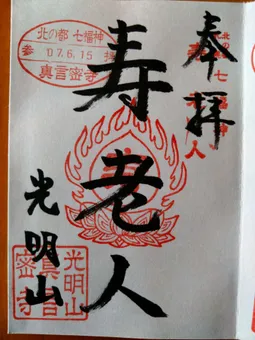 奉拝
北の都七福神
寿老人
北の都 七福神
参 07.6.15 拝
真言密寺
光明山
光明山
真言
密寺